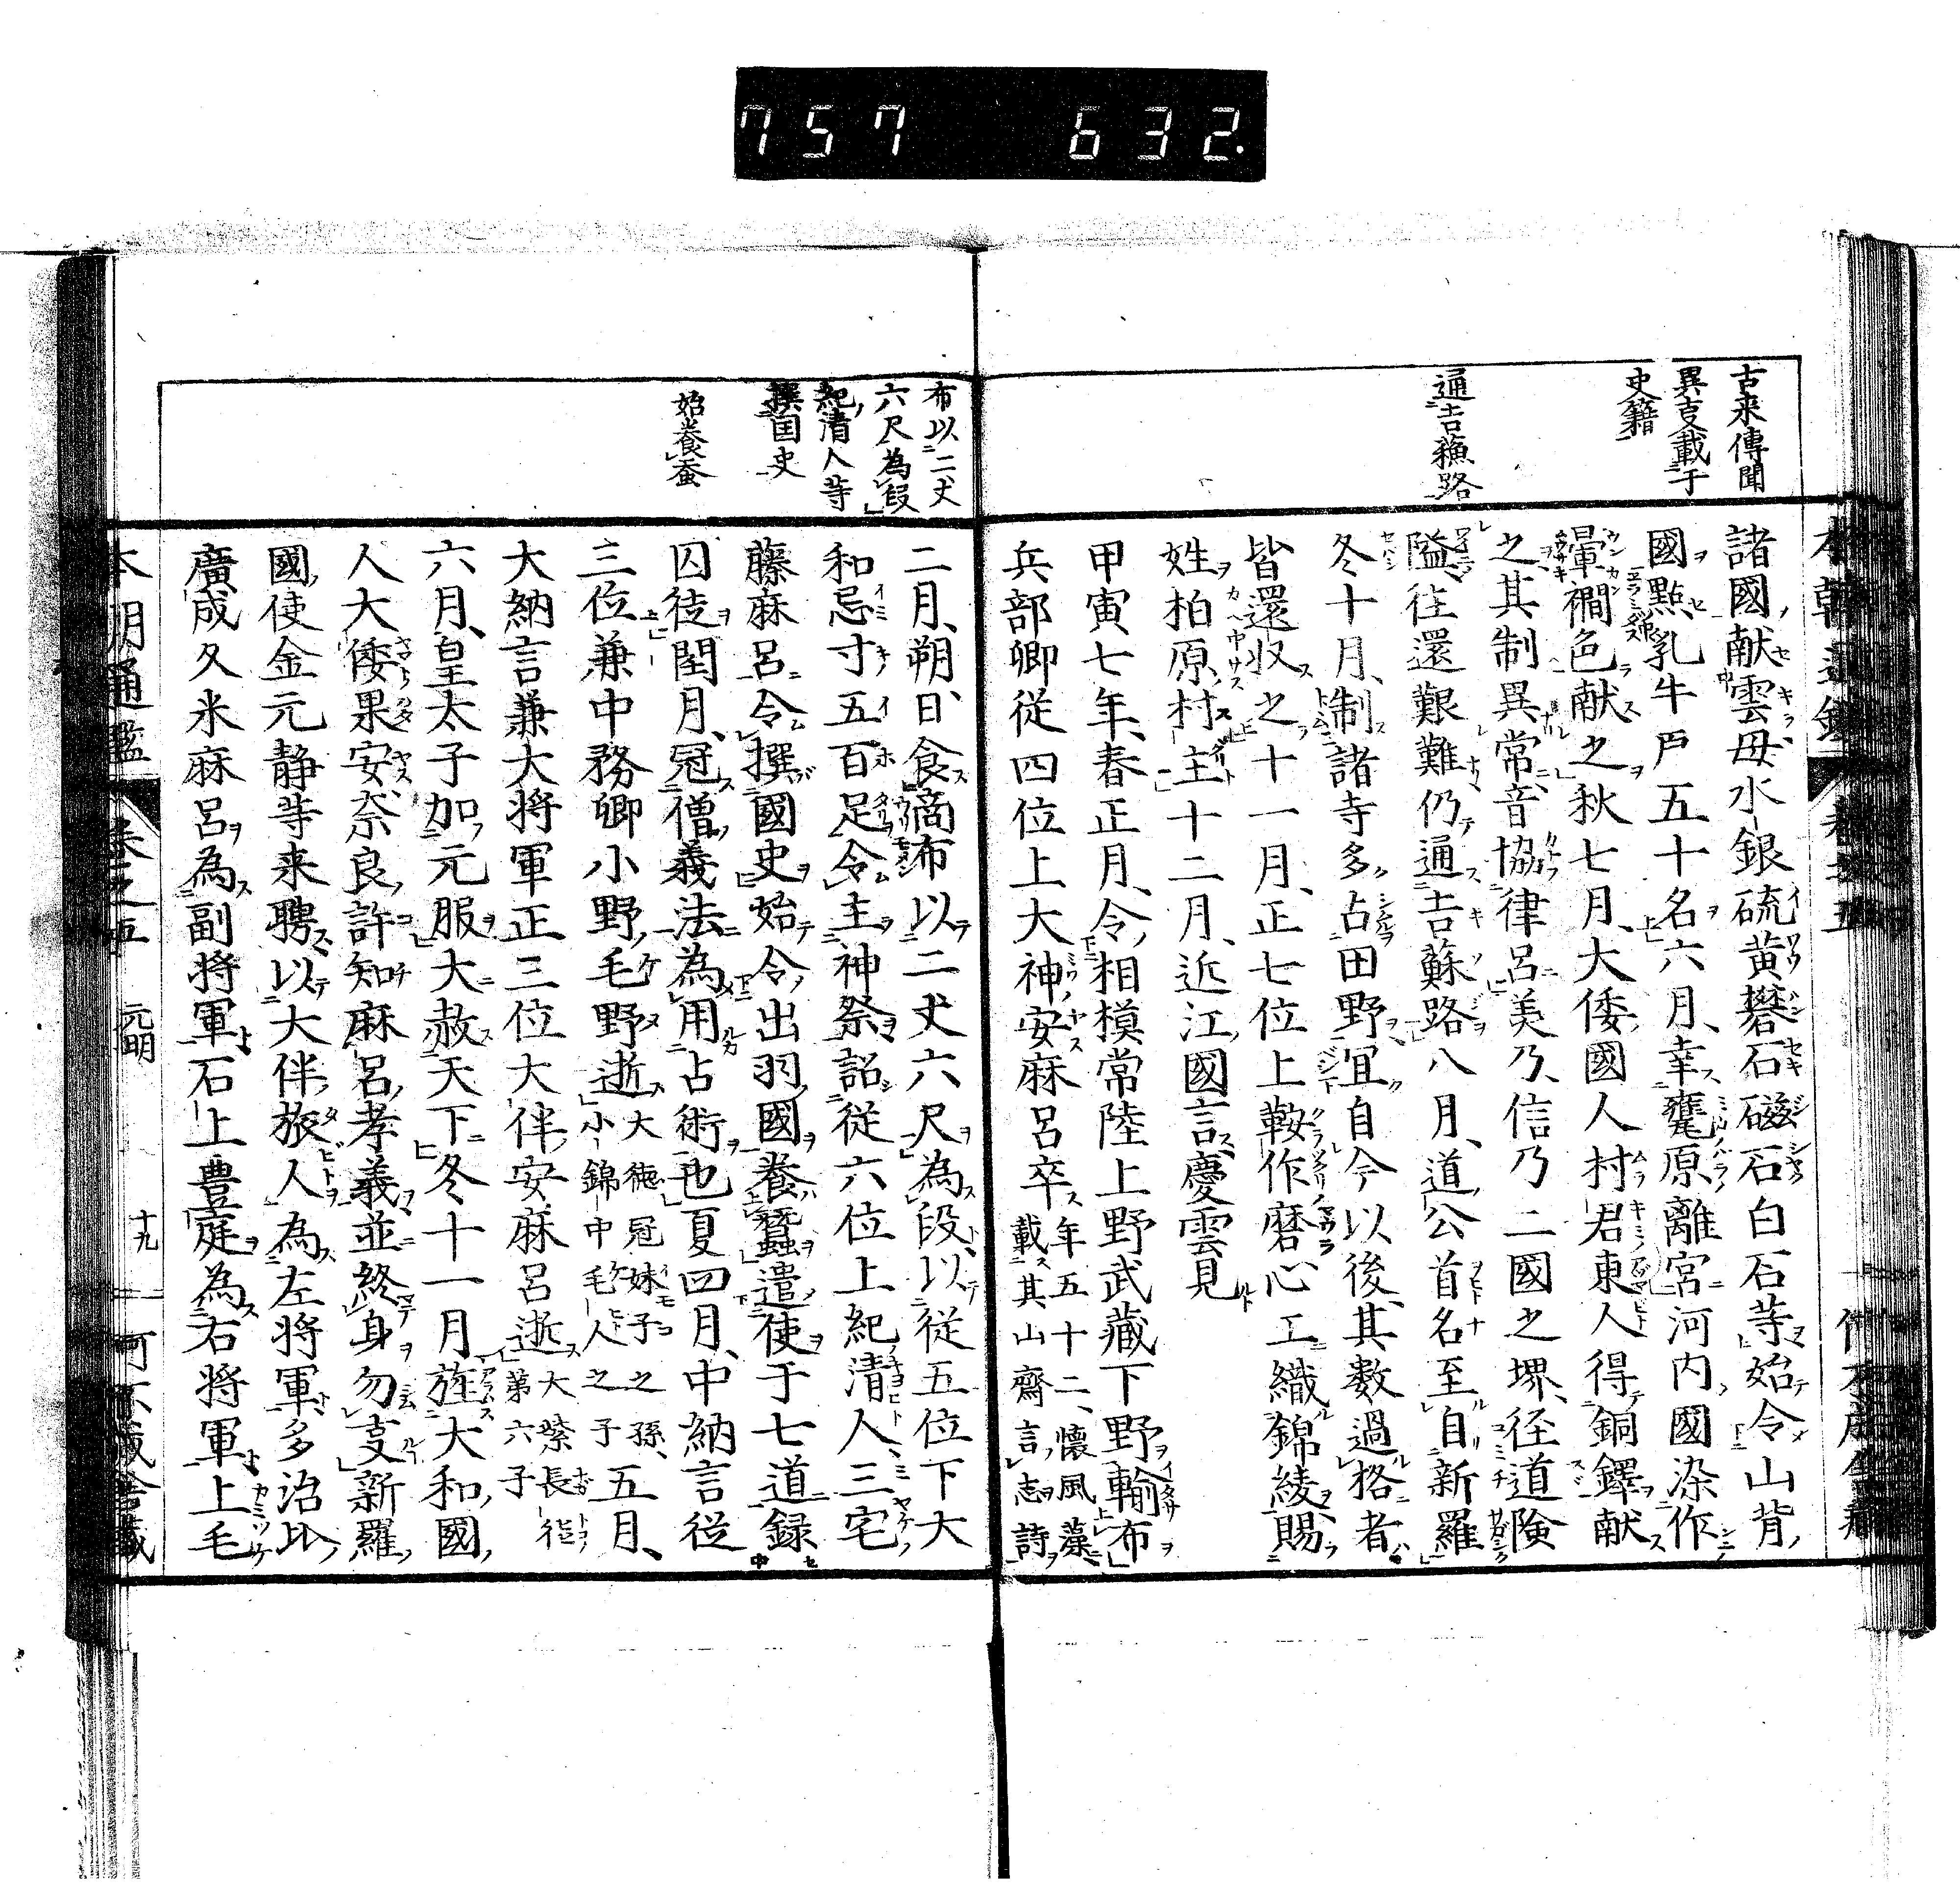 757 632.
古来傳聞
異支載于
史籍
通吉蘓路
諸國献雲母水銀硫黄礬石磁石白石等始令山背
國點乳牛戸五十名六月幸甕原離宮河内國染作
暈繝色献之秋七月大倭國人村君東人得銅鐸献
之其制異常音協律呂美乃信乃二國之堺径道険
隘往還艱難仍通吉蘇路八月道公首名至自新羅
冬十月制諸寺多占田野宜自今以後其數過格者
皆還収之十一月正七位上鞍作磨心工織錦綾賜
姓柏原村主十二月近江國言慶雲見
甲寅七年春正月令相模常陸上野武藏下野輸布
兵部卿従四位上大神安麻呂卒年五十二懐風藻
載其山齋言志詩
布以二丈
六尺為叚
紀清人等
撰国史
始養蚕
二月朔日食商布以二丈六尺為段以従五位下大
和忌寸五百足令主神祭詔従六位上紀清人三宅
藤麻呂令撰國史始令出羽國養蠶遣使于七道録
囚徒閏月冠僧義法為用占術也夏四月中納言従
三位兼中務卿小野毛野逝大徳冠妹子之孫
小錦中毛人之子五月
大納言兼大将軍正三位大伴安麻呂逝大紫長徳
第六子
六月皇太子加元服大赦天下冬十一月旌大和國
人大倭果安奈良許知麻呂孝義並終身勿支新羅
國使金元静等来聘以大伴旅人為左将軍多治比
廣成久米麻呂為副将軍石上豊庭為右将軍上毛
本朝通鑑 巻之五 元明 十九